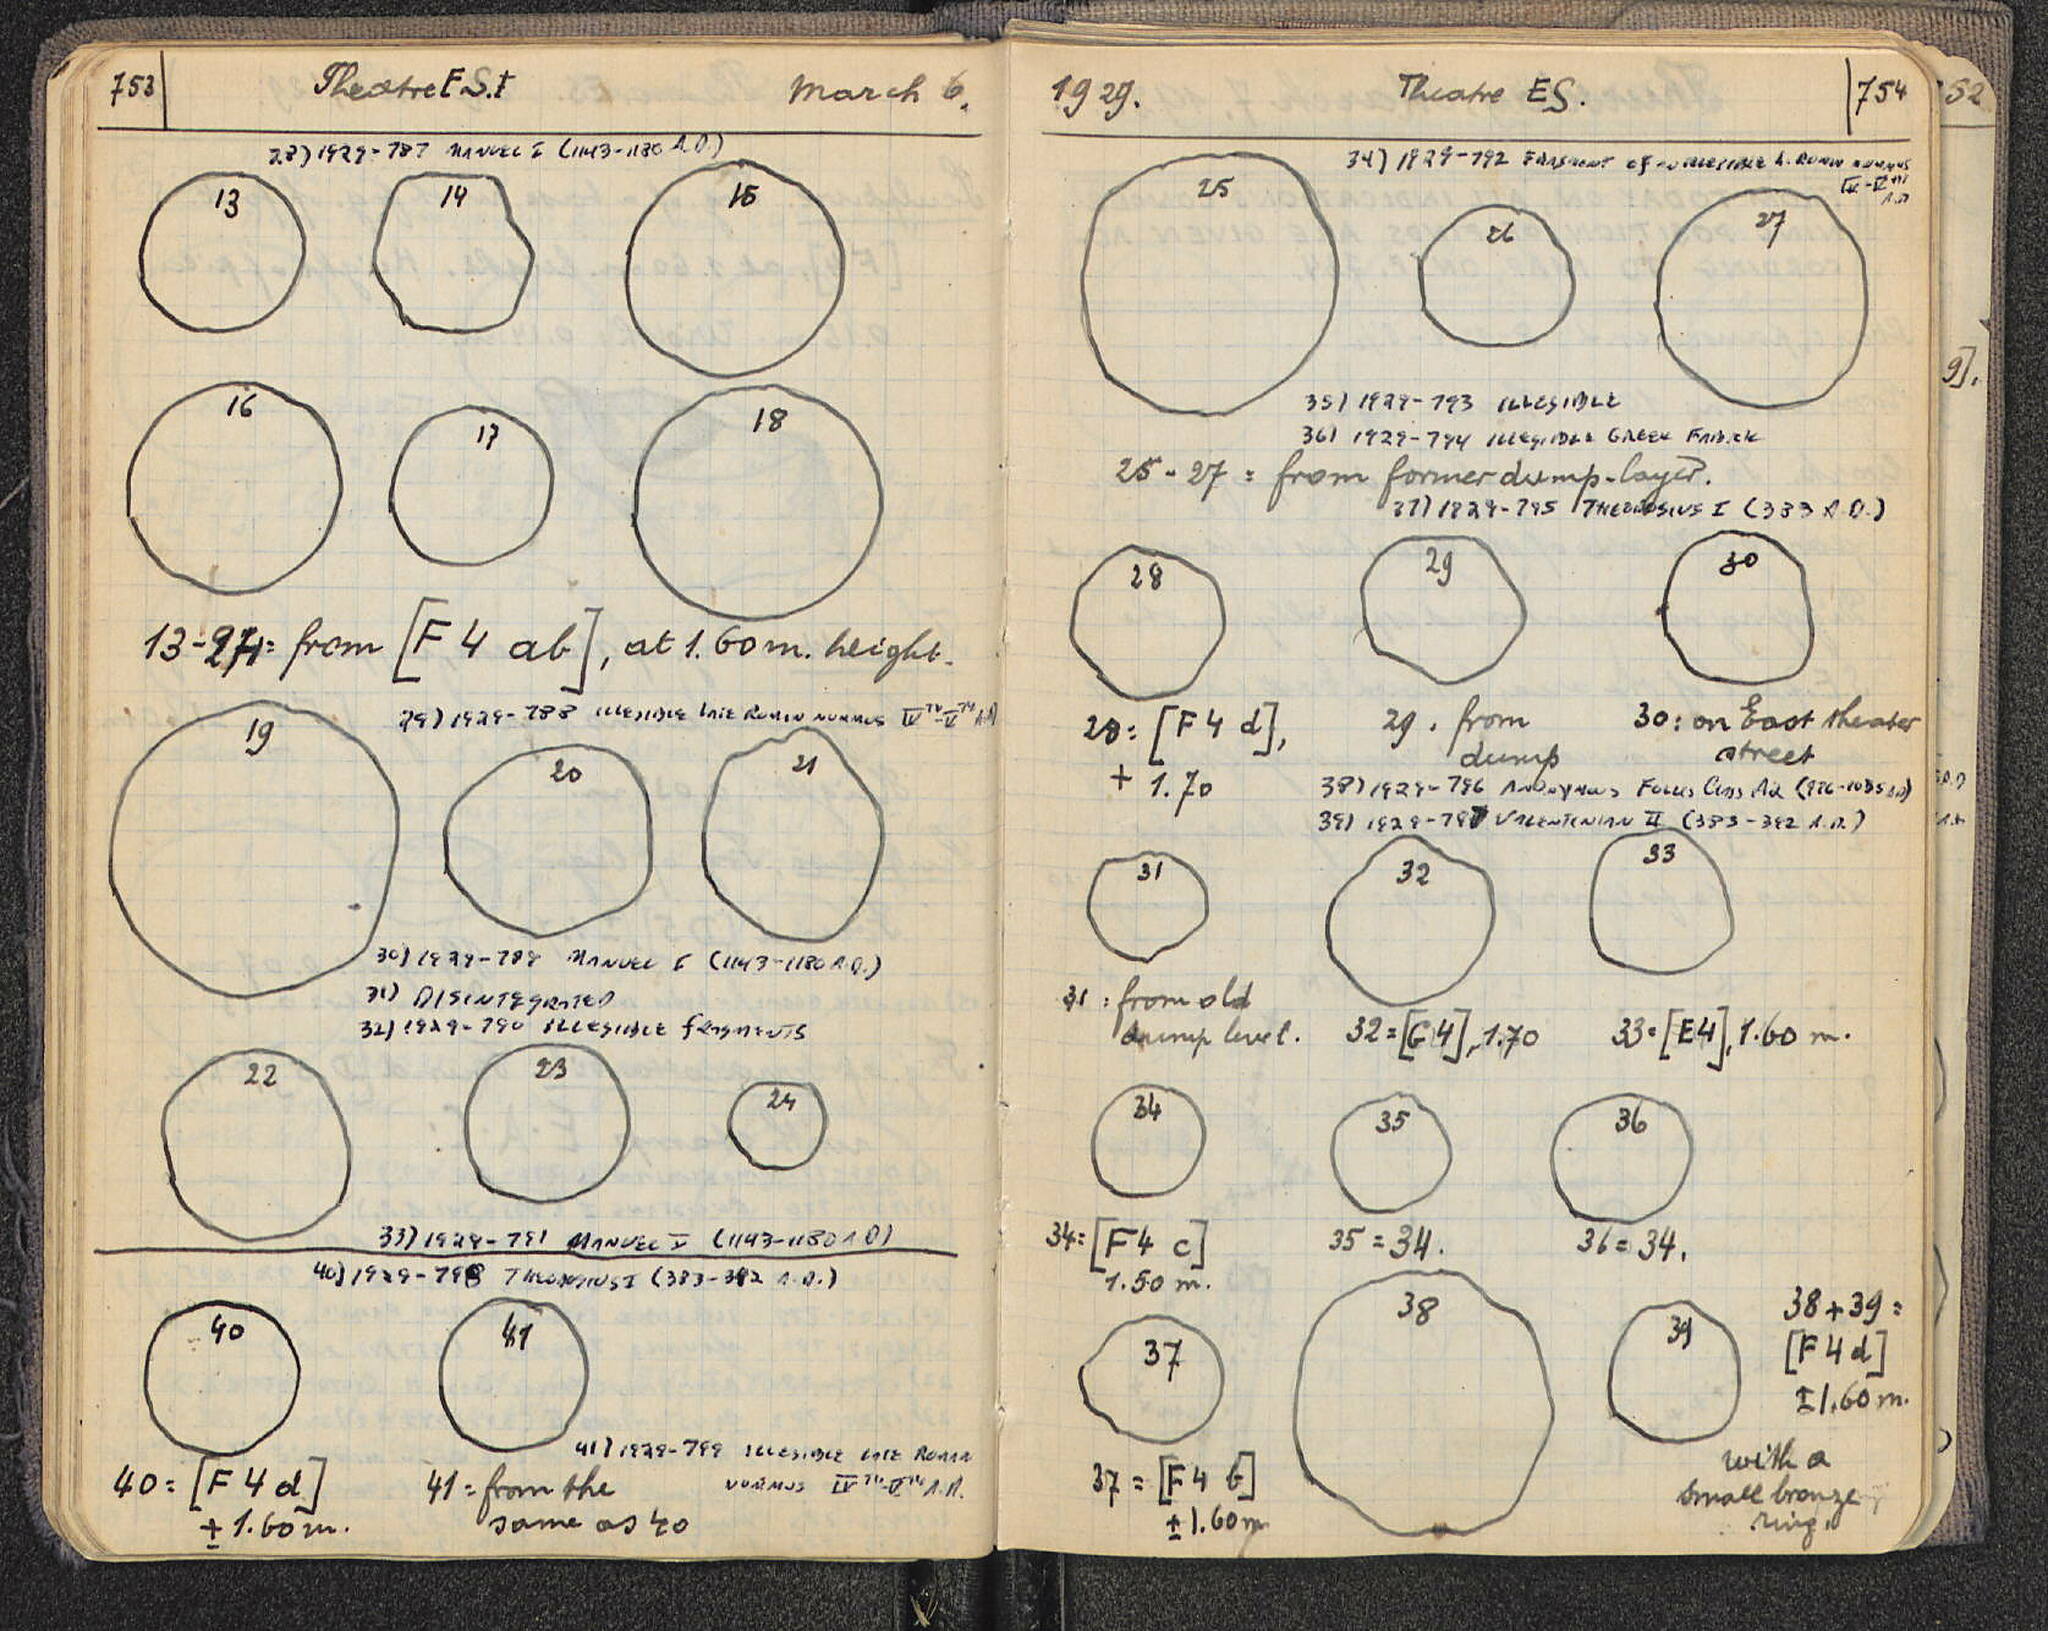 753 Theatre E.S.t March 6.
28) 1929-787 MANUEL I (1143-1180 A.D.)
13 14 15
16 17 18
13-24= from [F 4 ab], at 1.60 m. height.
29) 1929-788 ILLEGIBLE LATE ROMAN NUMMUS IVTH-VTH A.D.
19 20 21
30) 1929-789 MANUEL I (1143-1180 A.D.)
31) DISINTEGRATED
32) 1929-790 ILLEGIBLE FRAGMENTS
22 23 24
33) 1929-791 MANUEL I (1143-1180 A.D)
40) 1929-798 THEODOSIUS I (383-392 A.D.)
40 41
41) 1929-799 ILLEGIBLE LATE ROMAN
NUMMUS IVTH-VTH A.D.
40= [F 4 d]
± 1.60 m.
41= from the
same as 40
1929. Theatre ES. 754
34) 1929-792 FRAGMENT OF AN ILLEGIBLE L. ROMAN NUMMUS
IV-VTH
A.D
25 26 27
35) 1929-793 ILLEGIBLE
36) 1929-794 ILLEGIBLE GREEK FABRIC
25-27 = from former dump-layer.
37) 1929-795 THEODOSIUS I (383 A.D.)
28 29 30
28= [F 4 d],
+ 1.70
29. from
dump
30: on East theater
street
38) 1929-796 ANONYMOUS FOLLIS CLASS A2 (976-1035 A.D)
39) 1929-797 VALENTINIAN II (383-392 A.D.)
31 32 33
31: from old
dump level.
32=[G 4], 1.70
33=[E4], 1.60 m.
34 35 36
34= [F4 c]
1.50 m.
35 = 34.
36 = 34.
37 38 39
38+39=
[F 4 d]
±1.60 m.
with a
small bronze
ring.
37 = [F 4 b]
± 1.60 m
52
9].